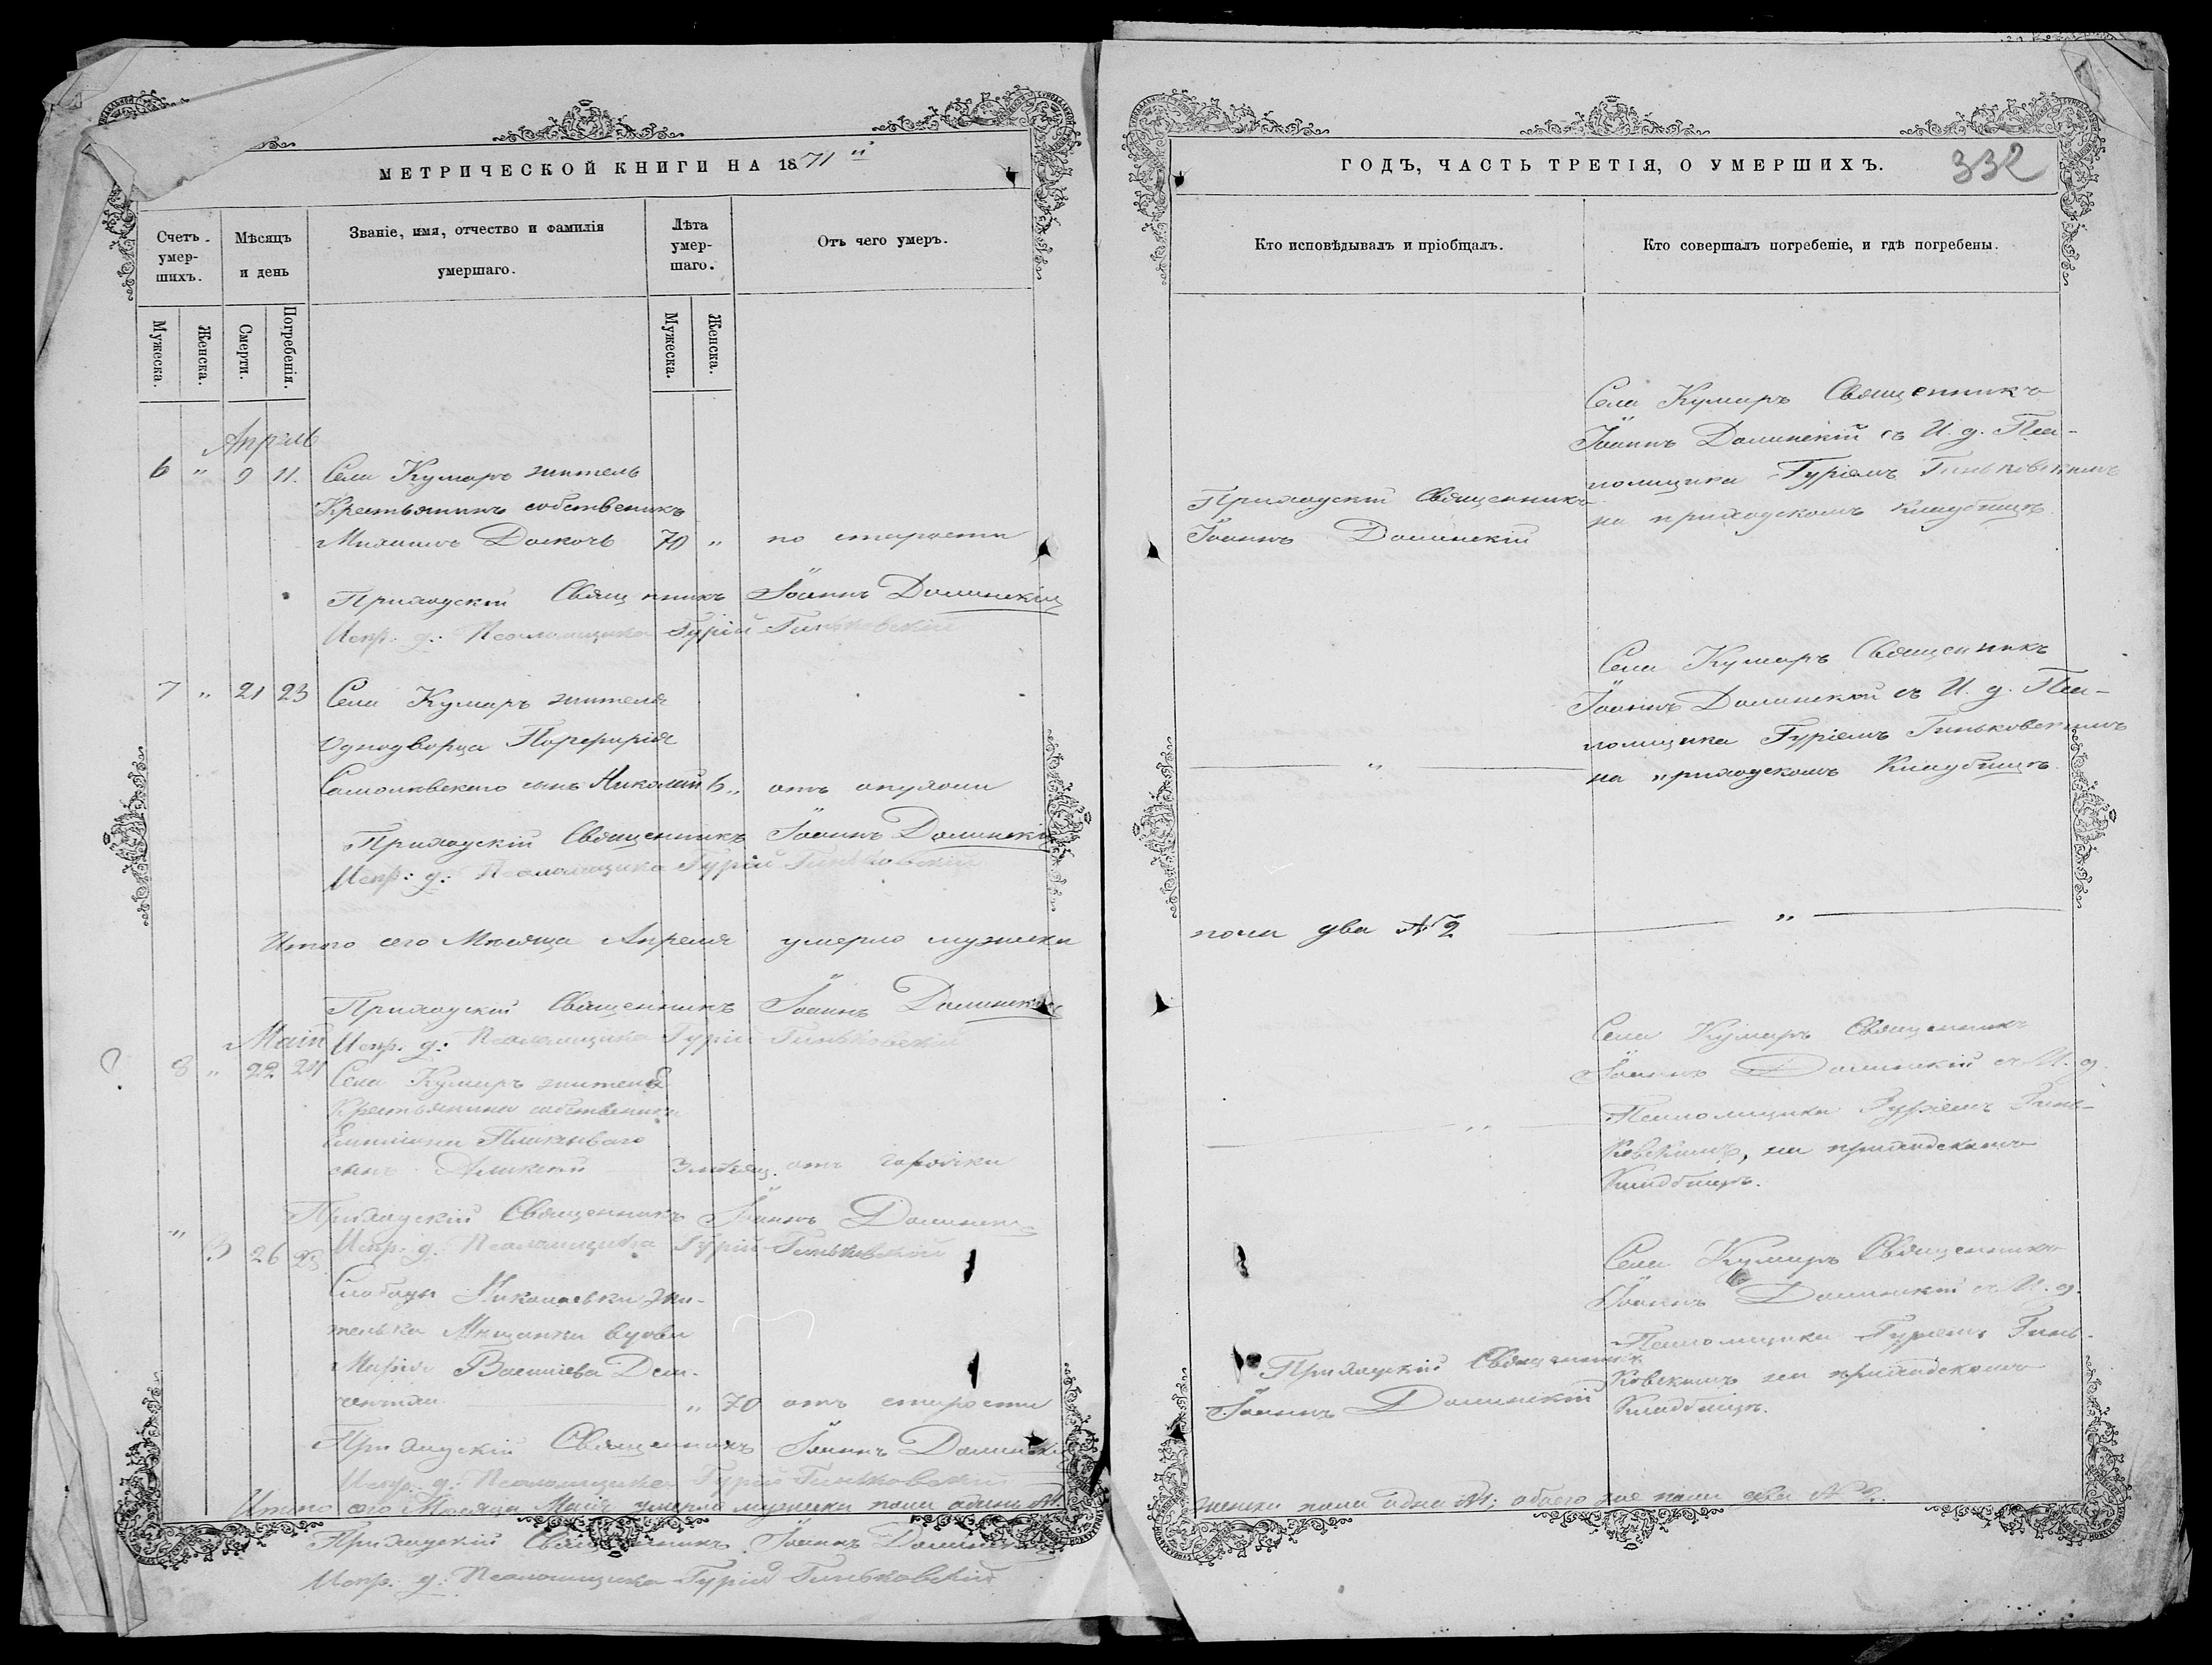 МЕТРИЧЕСКОЙ КНИГИ НА 1871й
Счетъ умер-шихъ.
Мѣсяцъ и день
Званіе, имя, отчество и фамилія умершаго.
Лѣта умер-шаго.
Отъ чего умеръ.
Мужеска.
Женска.
Смерти.
Погребенія.
Мужеска.
Женска.
Апрѣль
6 " 9 11. Села Кумаръ житель
Крестьянинъ собственикъ
Михаилъ 70 " по старости
Приходскій Священникъ Іоаннъ Долинскій
Испр. д: Псаломщика Гурій Гиньковскій
7 " 21 23 Села Кумаръ жителя
Однодворца Порфирія
сынъ Николай 6 " отъ опухоли
Приходскій Священникъ Іоаннъ Долинскій
Испр: д: Псаломщика Гурій Гиньковскій
Итого сего Мѣсяца Апреля умерло мужеска
Приходскій Священникъ Іоаннъ Долинскій
Май
Испр. д: Псаломщика Гурій Гиньковскій
8 " 22 24 Села Кумаръ жителя
Крестьянина собственика
сынъ Алексѣй 3 мѣсяц. отъ горячки
Приходскій Священникъ Іоаннъ Долинскій
Испр. д: Псаломщика Гурій Гиньковскій
" 3 26 28
Слободы Николаевки жи-
телька Мѣщанка вдова
Марія Васильева
" 70 отъ старости
Приходскій Священникъ Іоаннъ Долинскій
Испр. д: Псаломщика Гурій Гиньковскій
Итого сего Мѣсяца Мая умерло мужеска пола одинъ №1.
Приходскій Священникъ Іоаннъ Долинскій
Испр. д: Псаломщика Гурій Гиньковскій
ГОДЪ, ЧАСТЬ ТРЕТІЯ, О УМЕРШИХЪ.
332
Кто исповѣдывалъ и пріобщалъ.
Кто совершалъ погребеніе, и гдѣ погребены.
Села Кумаръ Священникъ
Іоаннъ Долинскій съ И. д. Пса-
ломщика Гуріемъ Гиньковскимъ
на приходскомъ Кладбищѣ
Приходскій Священникъ
Іоаннъ Долинскій
Села Кумаръ Священникъ
Іоаннъ Долинскій съ И. д. Пса-
ломщика Гуріемъ Гиньковскимъ
на приходскомъ Кладбищѣ
"
пола два №2 "
Села Кумаръ Священникъ
Іоаннъ Долинскій съ И. д.
Псаломщика Гуріемъ Гинь-
ковскимъ, на приходскомъ
Кладбищѣ.
"
Села Кумаръ Священникъ
Іоаннъ Долинскій съ И. д.
Псаломщика Гуріемъ Гинь-
ковскимъ на приходскомъ
Кладбищѣ.
Приходскій Священникъ
Іоаннъ Долинскій
женска пола одна №1; обоего же пола два №2.